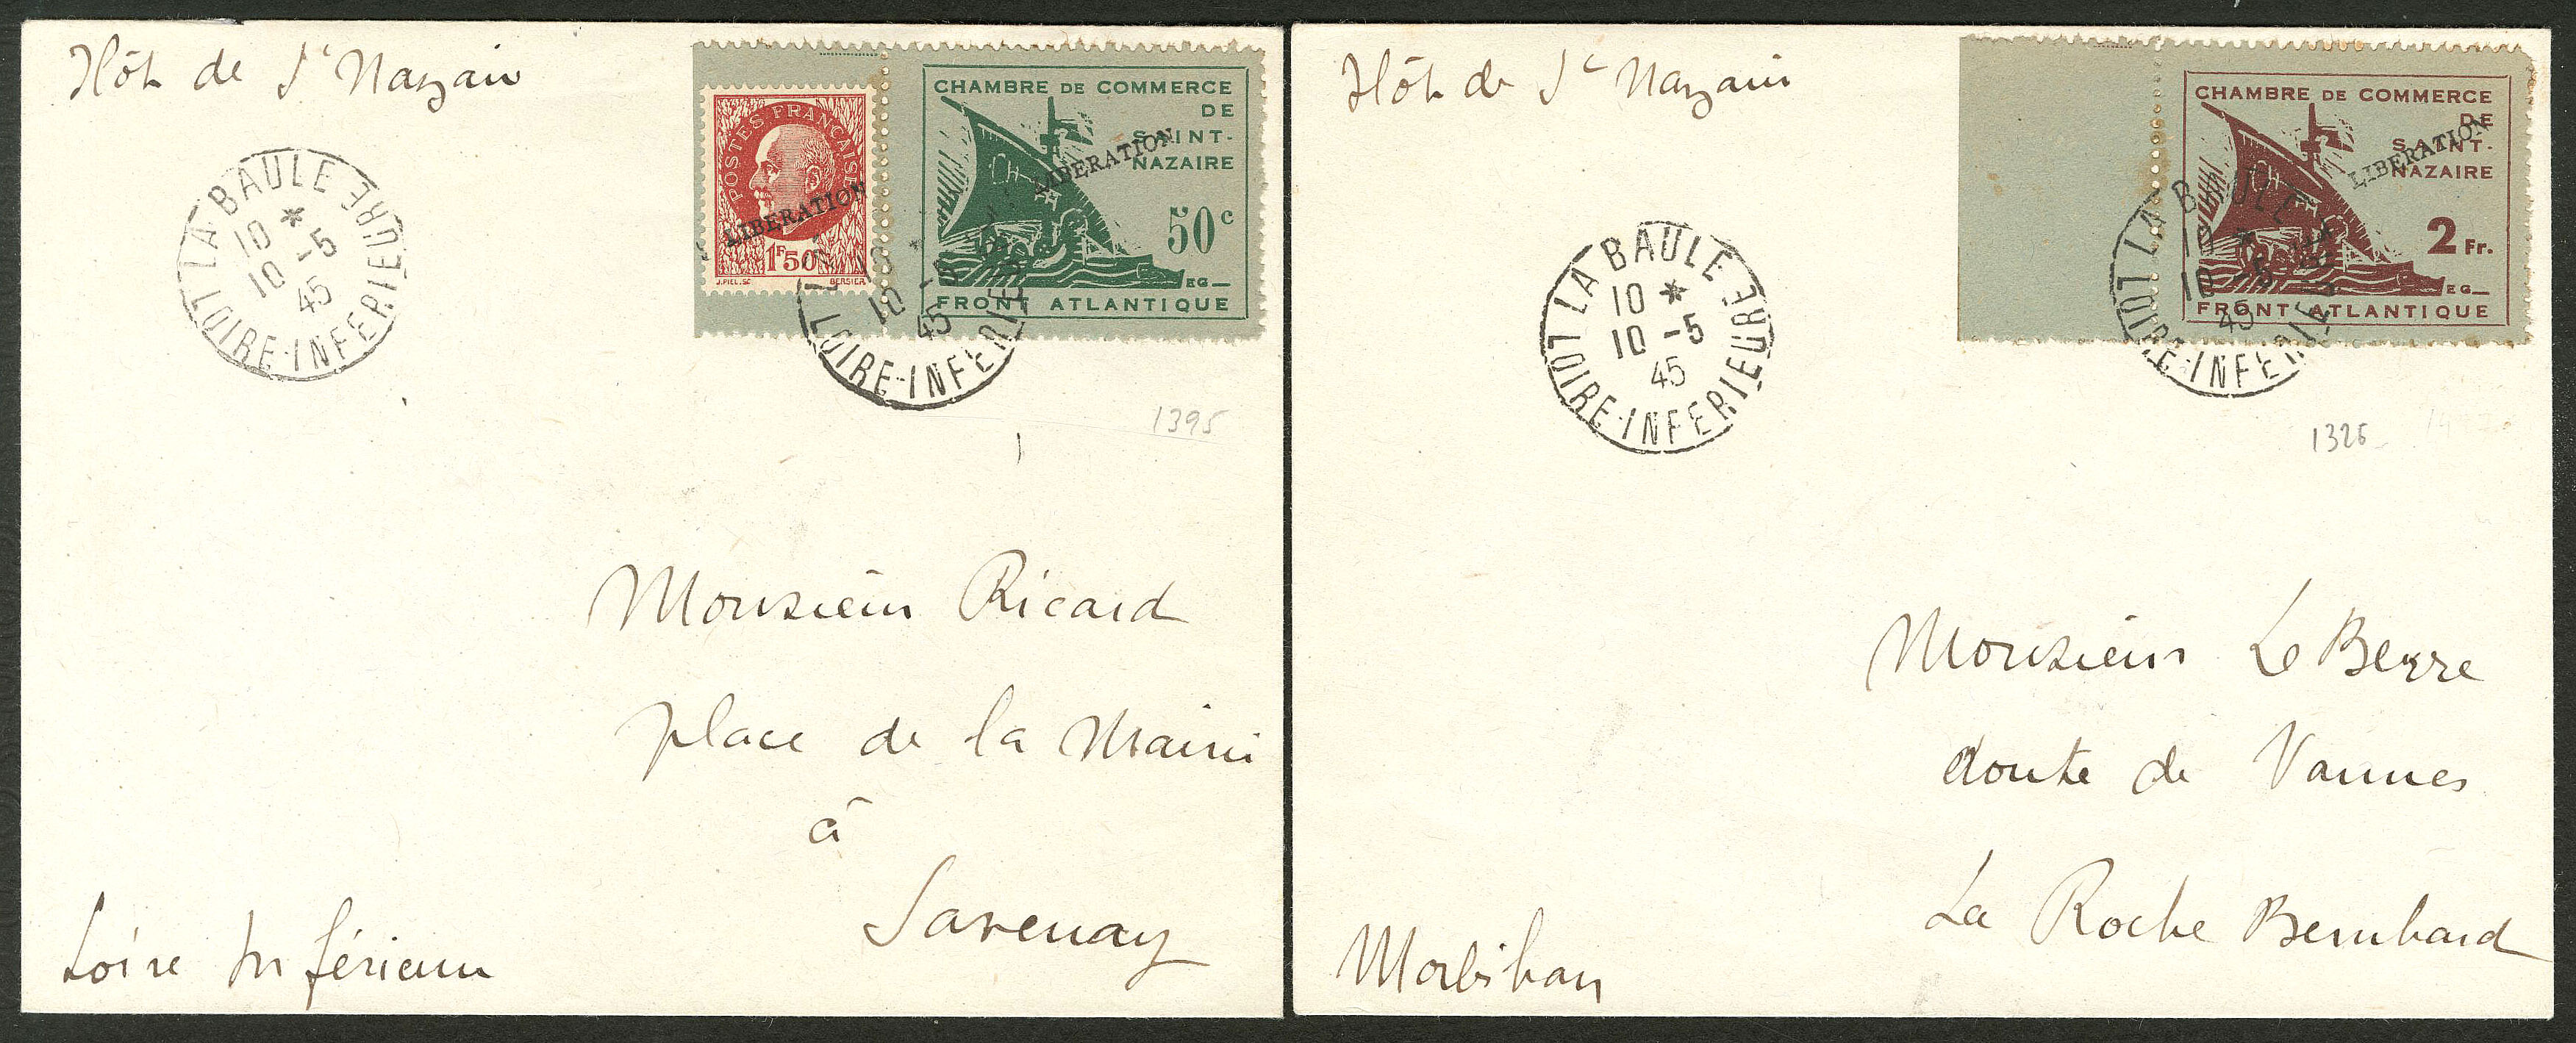 Hôt de St Nazaire
POSTES FRANÇAISES
LIBERATION
1F50
J.PIEL.SC BERSIER
CHAMBRE DE COMMERCE
DE
SAINT-
NAZAIRE
LIBERATION
50c
EG
FRONT ATLANTIQUE
LA BAULE
10 *
10 -5
45
LOIRE-INFERIEURE
LA BAULE
10 *
10 -5
45
LOIRE-INFERIEURE
1395
Monsieur Ricard
place de la Mairie
à
Savenay
Loire Inférieure
Hôt de St Nazaire
CHAMBRE DE COMMERCE
DE
SAINT-
NAZAIRE
LIBERATION
2 Fr.
EG
FRONT ATLANTIQUE
LA BAULE
10 *
10 -5
45
LOIRE-INFERIEURE
LA BAULE
10 *
10 -5
45
LOIRE-INFERIEURE
1326
Monsieur Le Berre
route de Vannes
La Roche Bernhard
Morbihan